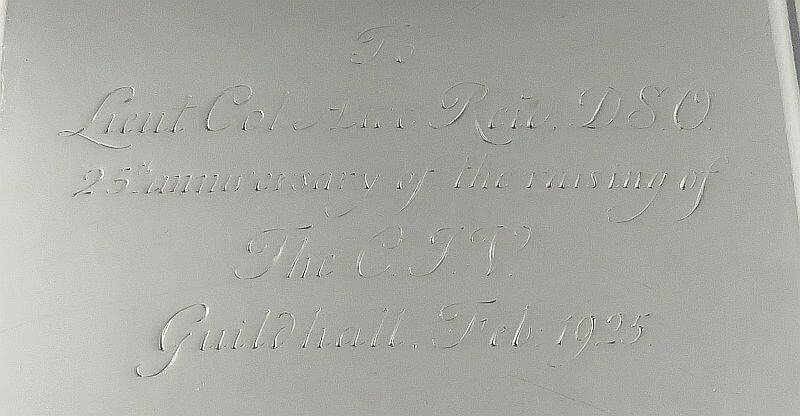 To
Lieut Col Reid. D.S.O.
25th anniversary of the raising of
The C.I.V.
Guildhall. Feb. 1925.